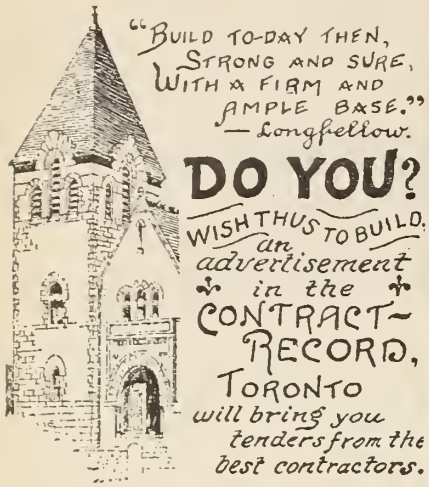 "BUILD TO-DAY THEN,
STRONG AND SURE,
WITH A FIRM AND
AMPLE BASE."
— Longfellow.
DO YOU?
WISH THUS TO BUILD,
an
advertisement
in the
CONTRACT-
RECORD,
TORONTO
will bring you
tenders from the
best contractors.